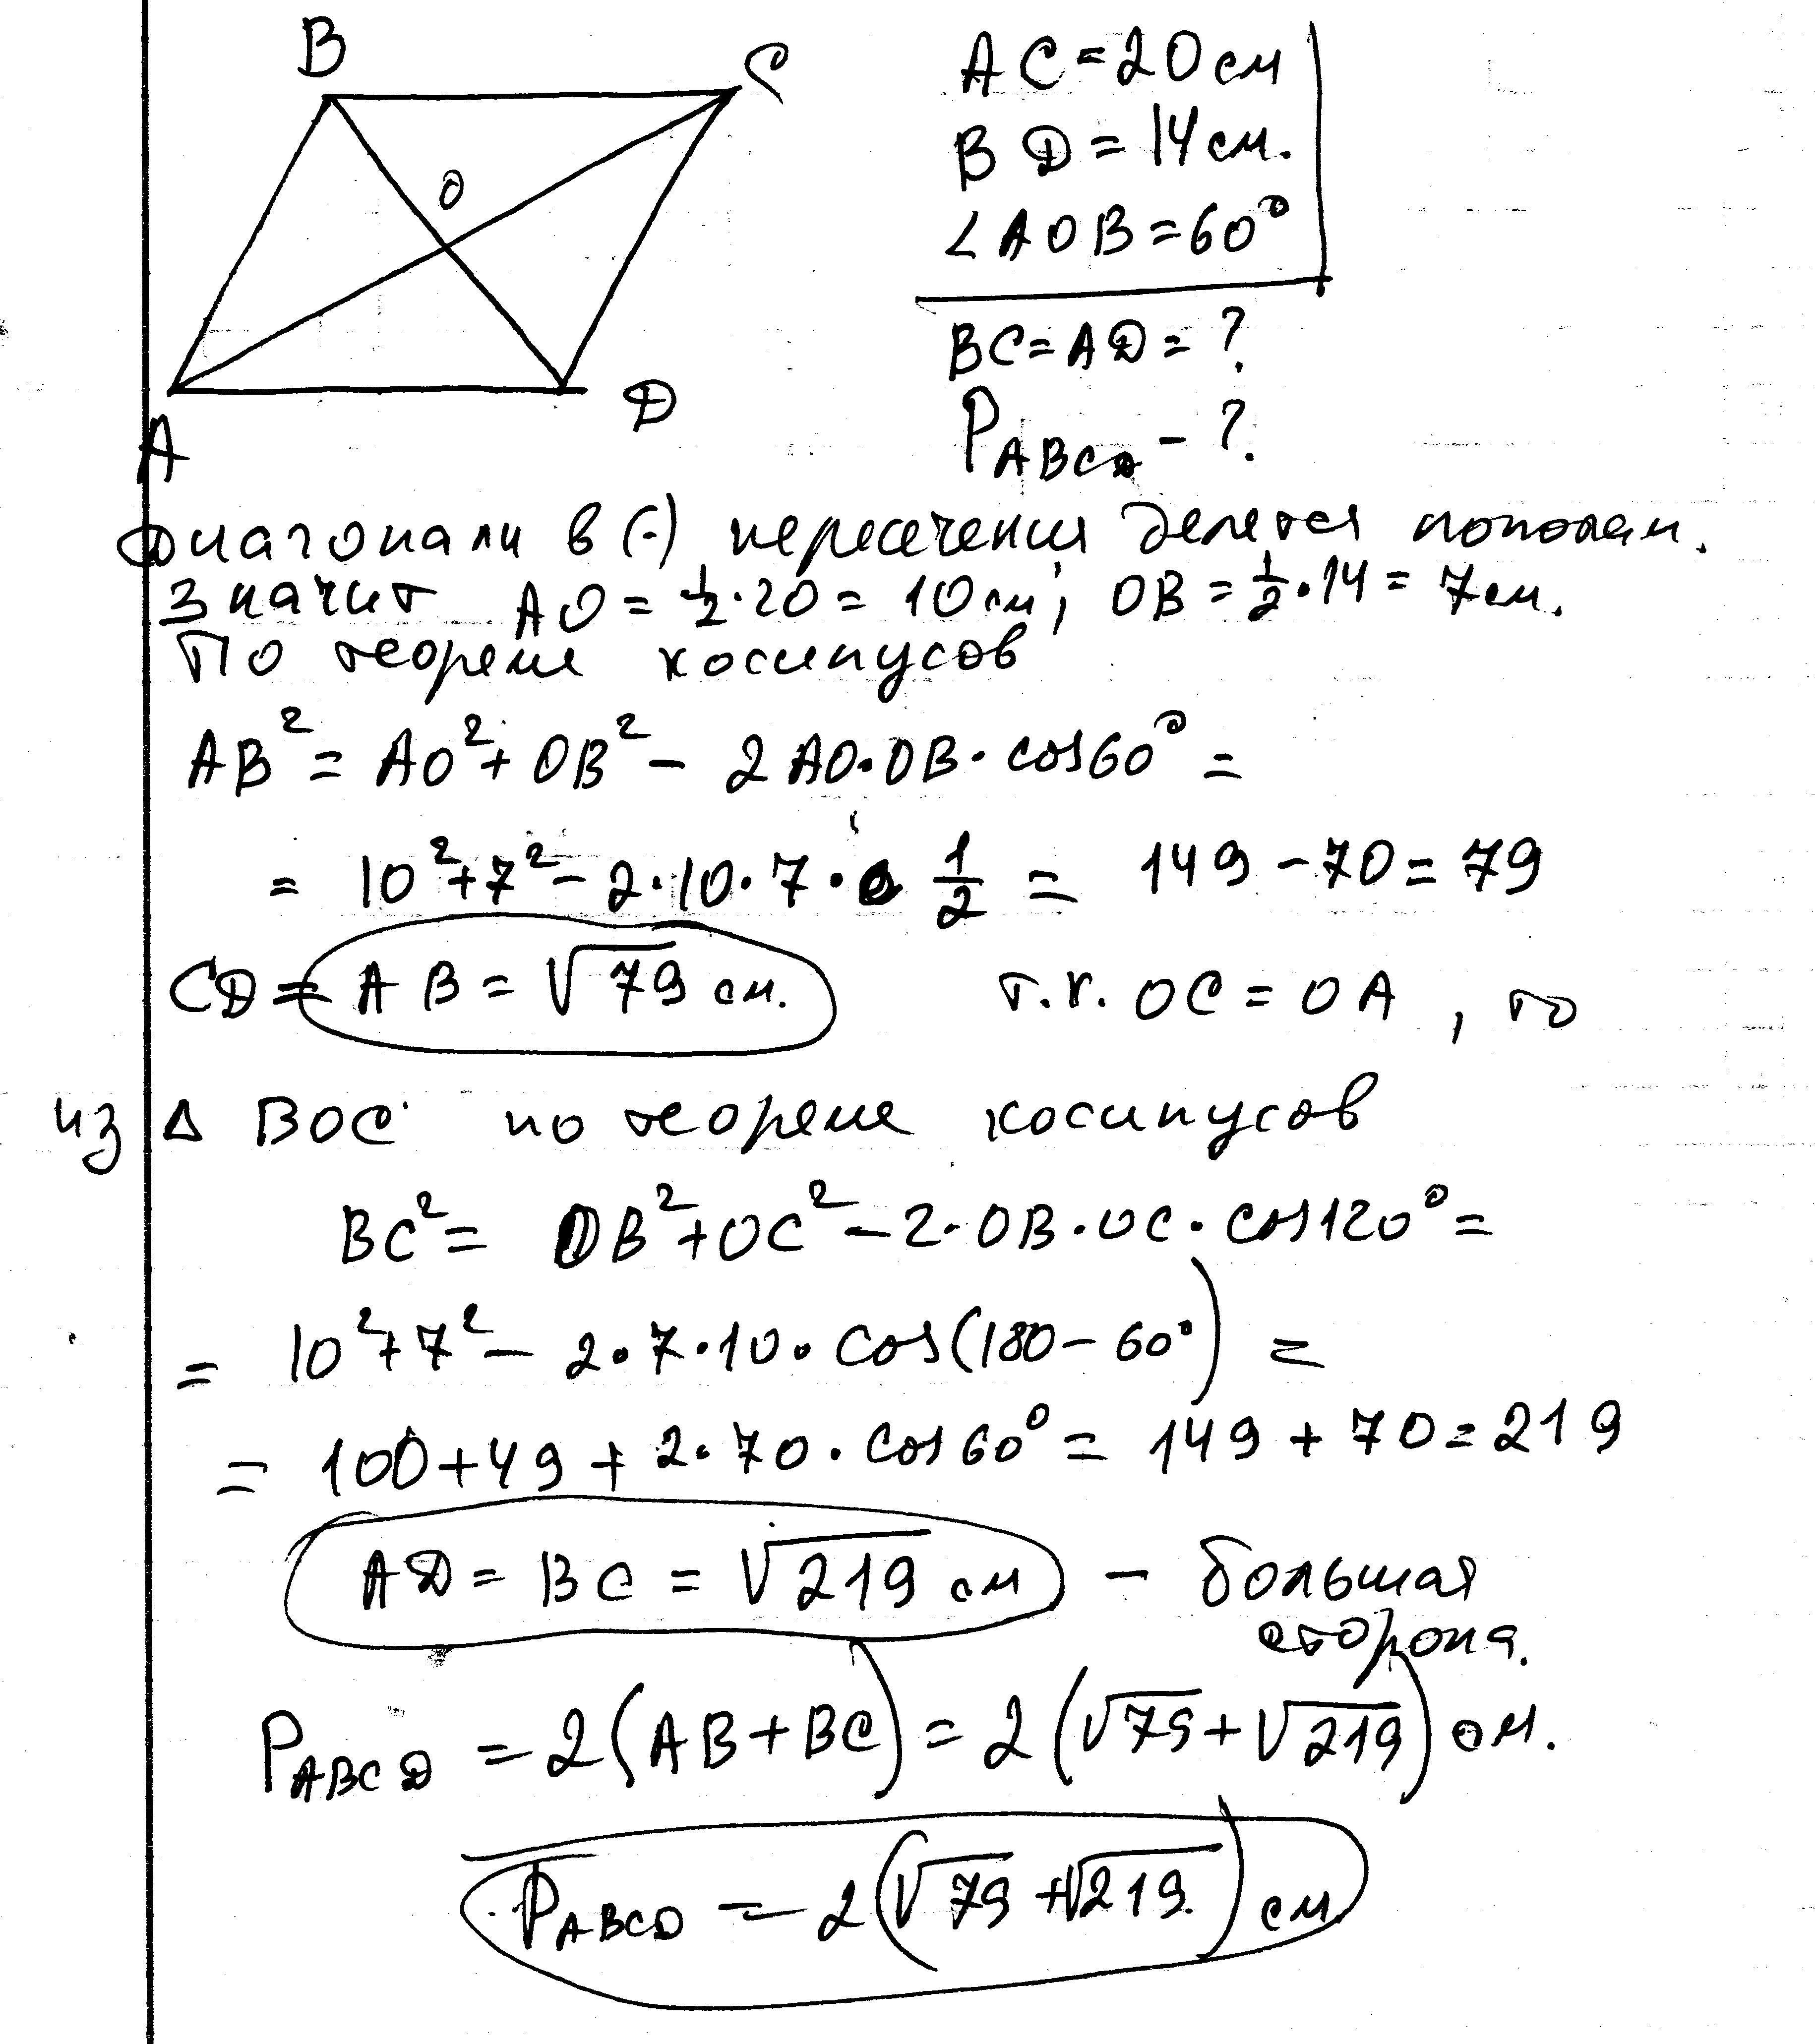 B
C
O
A
D
AC = 20 см
BD = 14 см.
∠AOB = 60°
BC = AD = ?
P_ABCD - ?
Диагонали в (·) пересечения делятся пополам.
Значит AO = 1/2 · 20 = 10 см; OB = 1/2 · 14 = 7 см.
По теореме косинусов
AB² = AO² + OB² - 2 AO · OB · cos60° =
= 10² + 7² - 2 · 10 · 7 · 1/2 = 149 - 70 = 79
CD = AB = √79 см. т.к. OC = OA, то
из Δ BOC по теореме косинусов
BC² = OB² + OC² - 2 · OB · OC · cos120° =
= 10² + 7² - 2 · 7 · 10 · cos(180 - 60°) =
= 100 + 49 + 2 · 70 · cos60° = 149 + 70 = 219
AD = BC = √219 см - большая
сторона.
P_ABCD = 2(AB + BC) = 2(√79 + √219) см.
P_ABCD = 2(√79 + √219) см